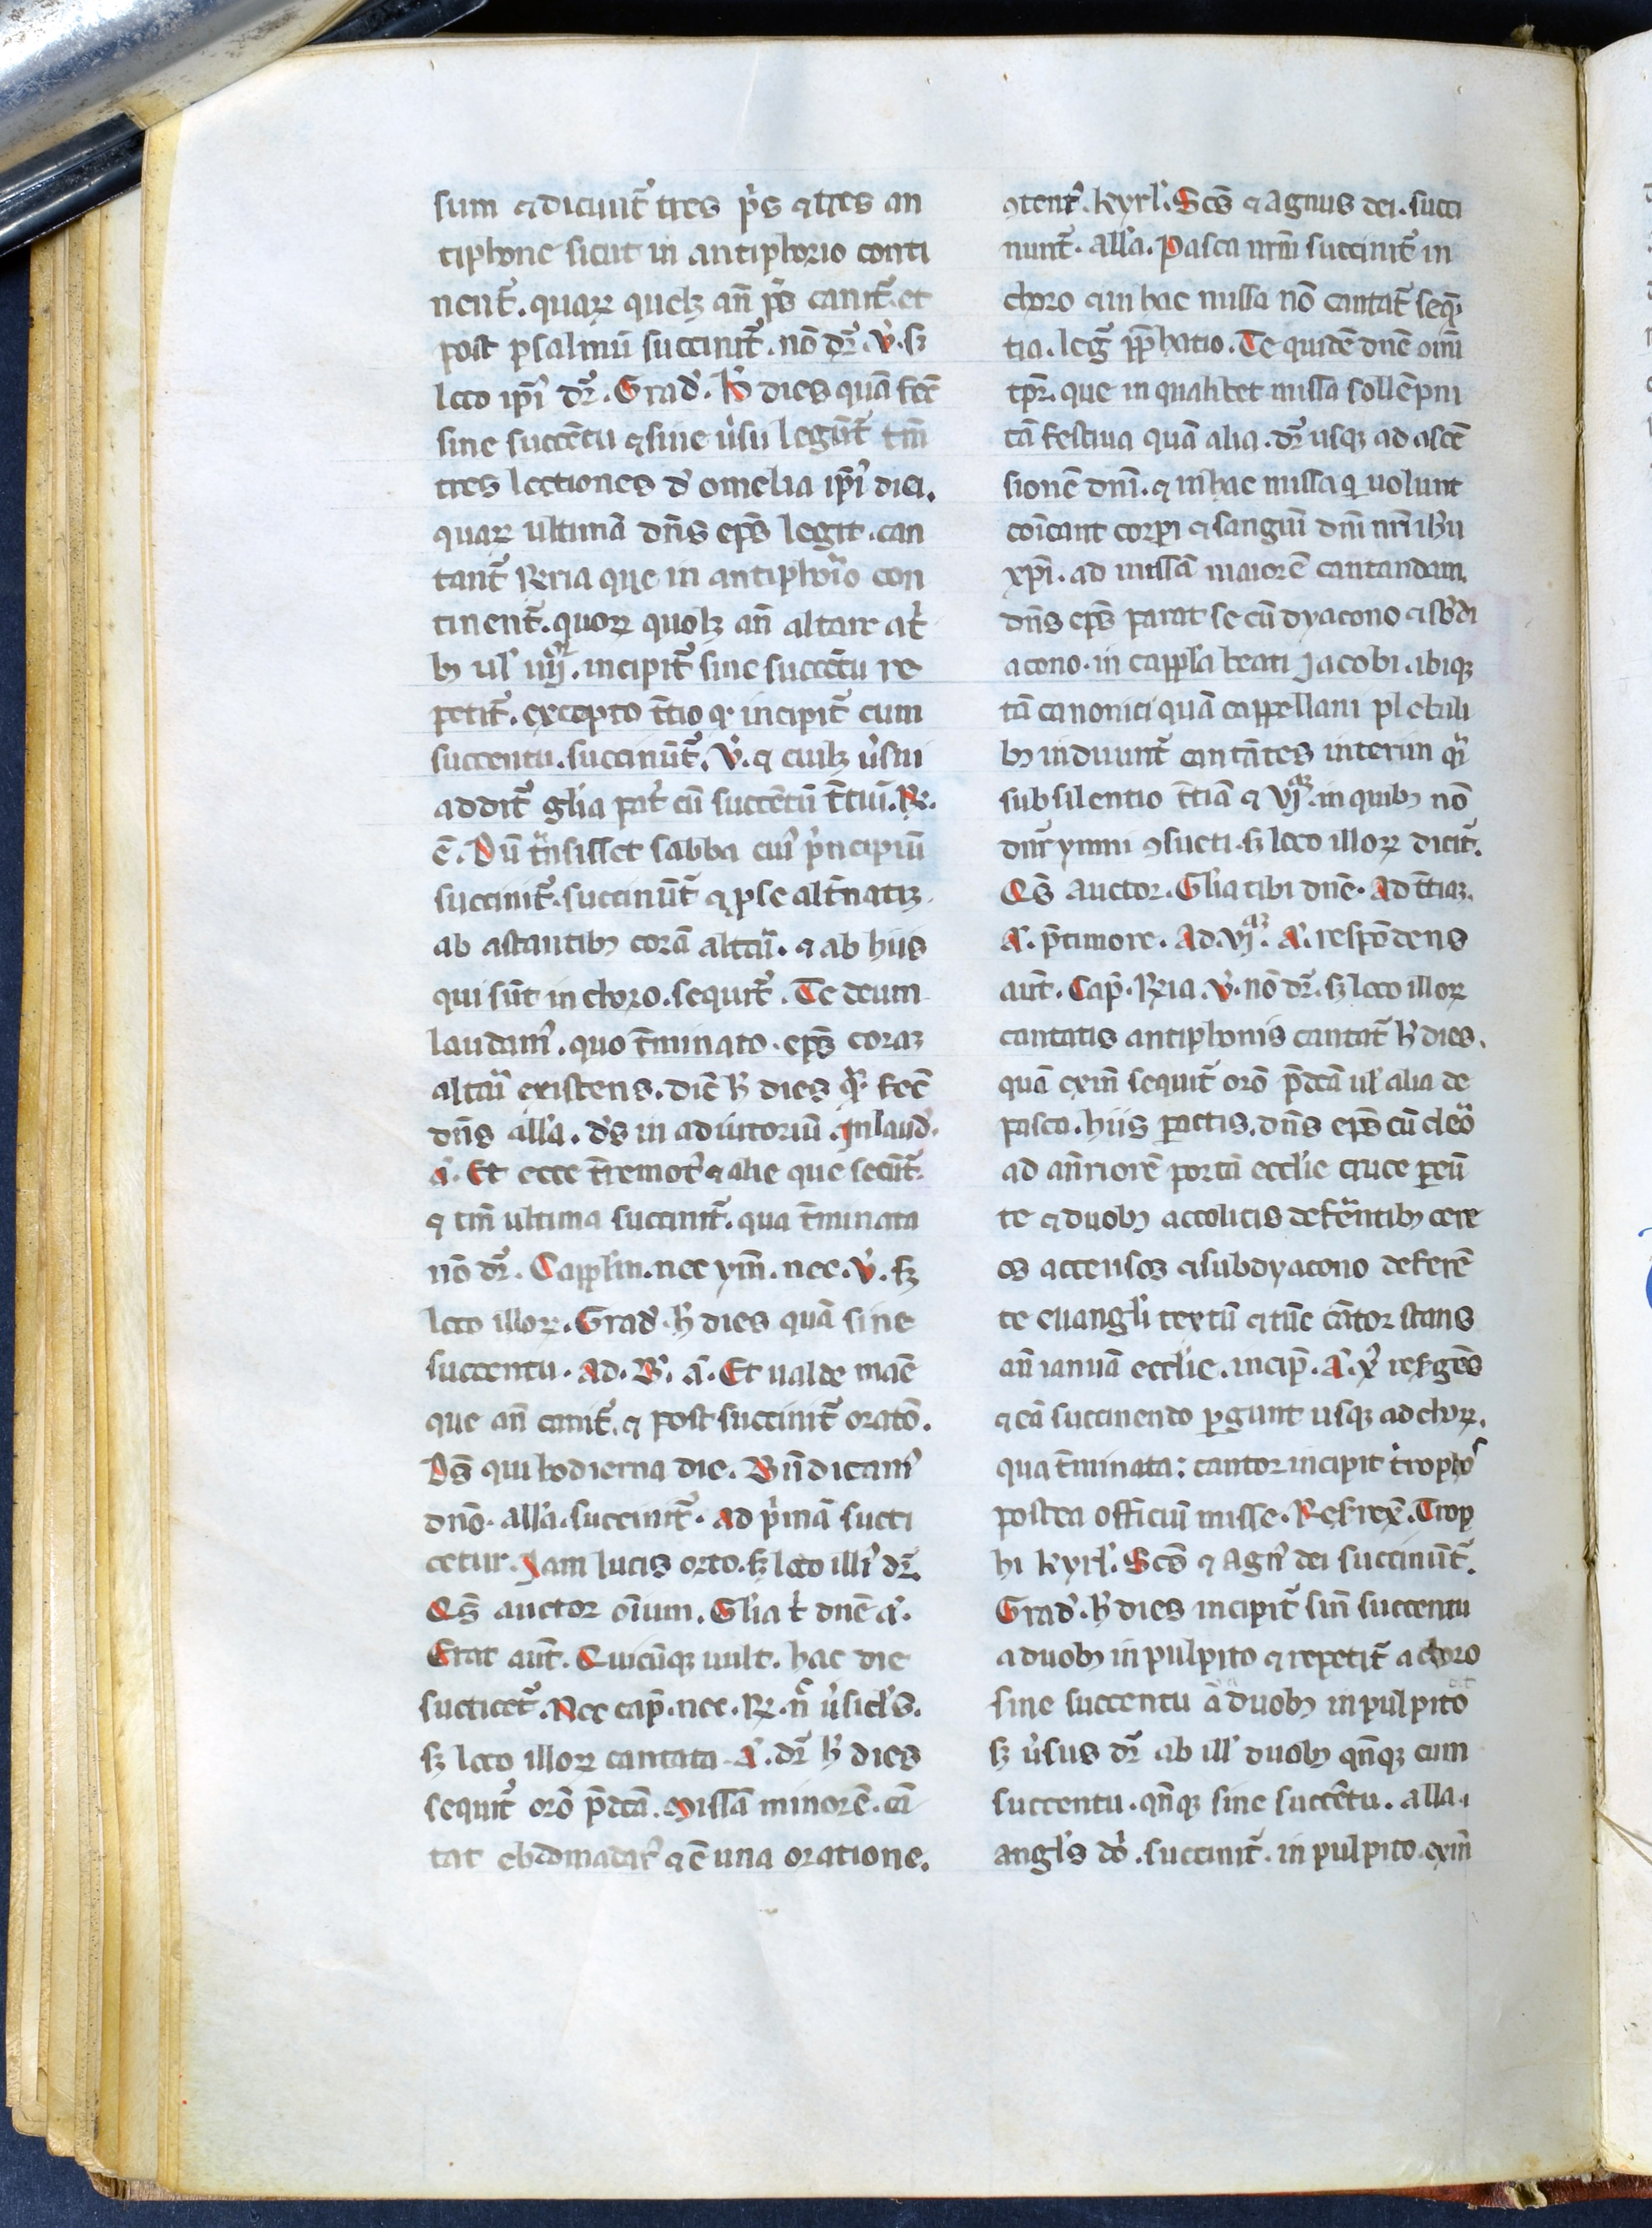 sum ⁊ dicunt᷑ tres ps̄ ⁊ tres an
tiphone sicut in antiphorio conti
nent᷑. quaꝝ quelꝫ an̄ ps̄ canit᷑. et
post psalmū succinit᷑. nō dr᷑. v̓. sꝫ
loco ip̄i᷒ dr᷑. Grad᷒. h̓ dies quā fec̄
sine succētu ⁊ sine ṽsu legūt᷑ tm̄
tres lectiones d̓ omelia ip̄i᷒ diei.
quaꝝ ultimā dn̄s ep̄s legit. can
tant᷑ ꝶria que in antiphorio con
tinent᷑. quoꝝ quolꝫ an̄ altare at̓
bꝫ ul᷒ iiij. incipit᷑ sine succētu re
petit᷑. excepto t̄tio qͥ incipit᷑ cum
succentu. succinūt᷑. v̓. ⁊ cuilꝫ ṽsui
addit᷑ gl̓ia pat̓ cū succētū t̄tiū. ꝶ.
ē. Dū tͣnsisset sabba cui᷒ pͥncipiū
succinit᷑. succinūt᷑ ⁊ ꝑ se alt̄natiꝫ.
ab astantibꝫ corā altaͥ. ⁊ ab hiis
qui sūt in choro. sequit᷑. Te deum
laudam᷒. quo t̄minato. ep̄s coraꝫ
altaͥ existens. dic̄ h̓ dies qͣ fec̄
dn̄s all̓a. d̓s in adiutoriū. Jn laud᷒.
a᷒. Et ecce t̄remot᷒ ⁊ alie que secūt᷑.
⁊ tm̄ ultima succinit᷑. qua t̄minata
nō dr᷑. Capl̓m. nec ym̄. nec. v̓. sꝫ
loco illoꝝ. Grad᷒. h̓ dies quā sine
succentu. ad. B᷒. a᷒. Et ualde mane
que an̄ canit᷑. ⁊ post succinit᷑ oratō.
Ds̄ qui hodierna die. Bn̄dicam᷒
dnō. all̓a. succinit᷑. ad pͥmā succi
cetur. Jam lucis orto. sꝫ loco illi᷒ dr᷑.
Qs̄ auctor oīum. Gl̓ia t̓ dn̄e a᷒.
Erat aūt. Quicūqꝫ uult. hac die
succicet᷑. Nec cap̄. nec. ꝶ. n̄ ṽsicl̓s.
sꝫ loco illoꝝ cantata. a᷒. dr᷑ h̓ dies
sequit᷑ orō p̄dcā. Missā minorē. cā
tat ebdomadar᷒ ⁊ ē una oratione.
ꝯtent᷑. kyrl᷒. Scs̄ ⁊ Agnus dei. succi
nunt᷑. all̓a. Pasca nr̄m succinit᷑ in
choro ⁊ in hac missa nō cantat᷑ seqͣ
tia. leg᷑ p̄phatio. Te quidē dn̄e omī
tpr̄. que in qualibet missa sollēpni
tā festiua quā alia. dr᷑ usqꝫ ad ascē
sionē dnī. ⁊ in hac missa qͥ uolunt
coīcant corpͥ ⁊ sangui dn̄i nr̄i ih̓u
xp̄i. ad missā maiorē cantandam.
dn̄s ep̄s parat se cū dyacono ⁊ sb̓di
acono. in cappl̓a beati Jacobi. ibiqꝫ
tā canonici quā cappellani plebali
bꝫ induunt᷑ cantātes interim qͣi
sub silentio t̄tiā ⁊ vjͣꝫ. in quibꝫ nō
dnr᷑ ymni ꝯsueti. sꝫ loco illoꝝ dicit᷑.
Qs̄ auctor. Gl̓ia tibi dn̄e. Ad t̄tiaꝫ.
a᷒. p̄ timore. Ad. vjͣꝫ. a᷒. respōdens
aūt. Cap̄. ꝶria. v̓. nō dr᷑. sꝫ loco illoꝝ
cantatis antiphonis cantat᷑ h̓ dies.
quā exin̄ sequit᷑ orō p̄dcā ul᷒ alia de
pasca. hiis ꝑactis. dn̄s ep̄s cū cleͦ
ad an̄riorē portā eccl̓ie cruce p̄eū
te ⁊ duobꝫ accolitis defēntibꝫ cere
os accensos ⁊ subdyacono deferē
te euangl̓i textū ⁊ tūc cātor stans
an̄ ianuā eccl̓ie. incip̄. a᷒. xͦ resᵍgēs
⁊ eā succinendo ꝑgunt usqꝫ ad choꝝ.
qua t̄minata: cantor incipit troph᷒
postea officiū misse. Resr̓rex̄. Trop
hi kyrl᷒. Scs̄ ⁊ agn᷒ dei succinūt᷑.
Grad᷒. h̓ dies incipit᷑ sin̄ succentu
a duobꝫ in pulpito ⁊ repetit᷑ a choro
sine succentu ā duobꝫ in pulpito
sꝫ ṽsus dr᷑ ab ill᷒ duobꝫ qn̄qꝫ cum
succentu. qn̄qꝫ sine succētu. alla.
angl̓s dͦ. succinit᷑. in pulpito. exin̄